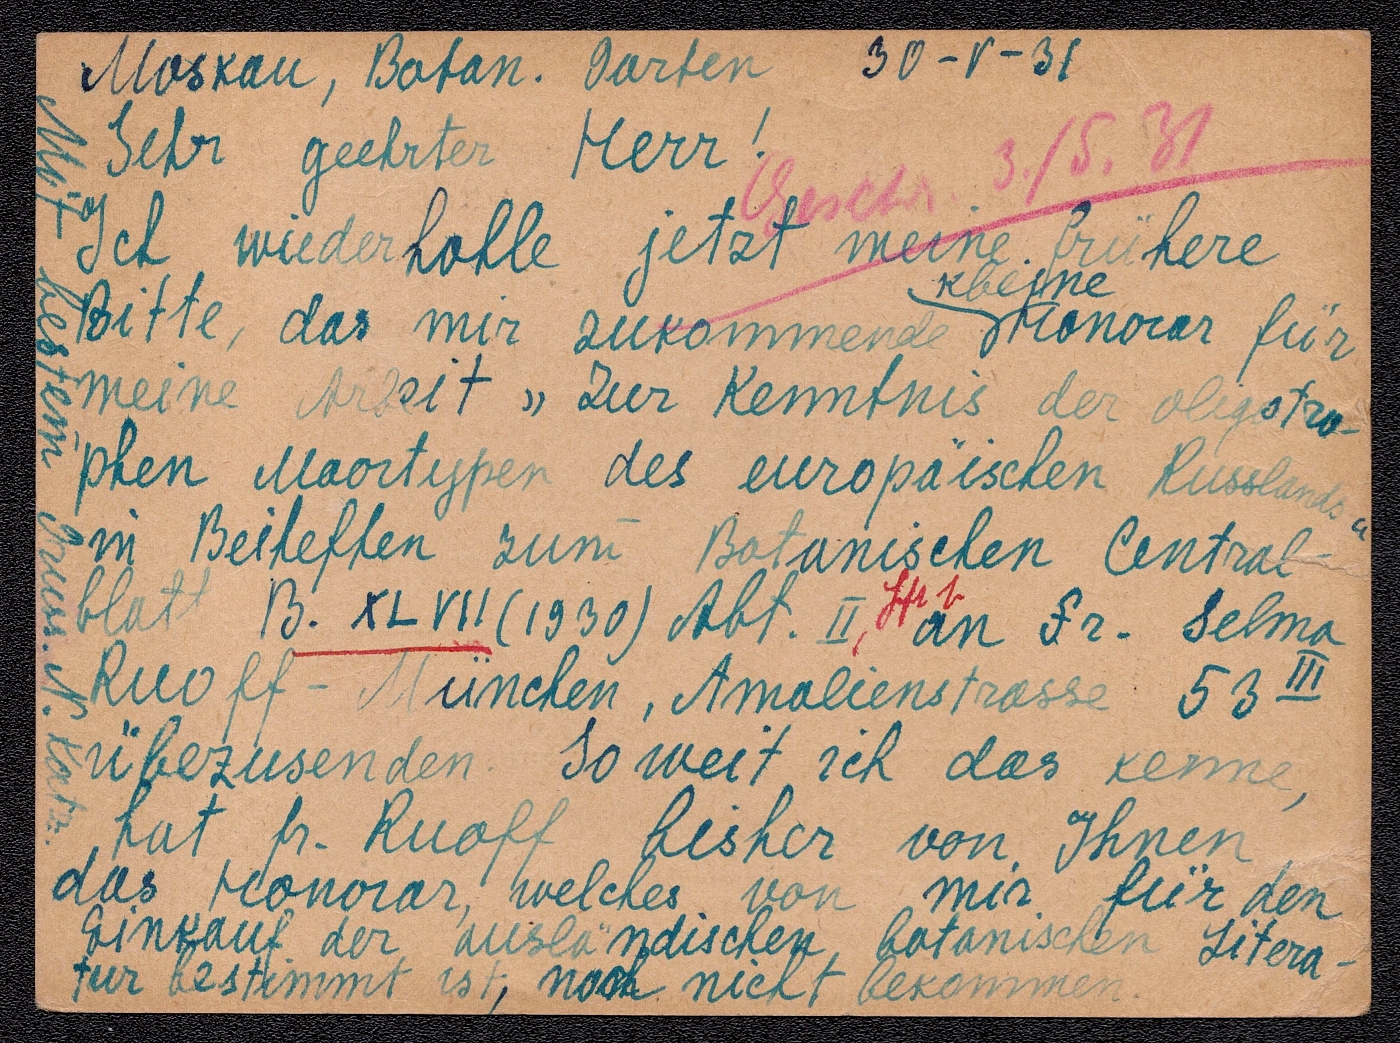 Moskau, Botan. Garten 30-V-31
Sehr geehrter Herr!
Geschr. 3./5. 31
Ich wiederhohle jetzt meine frühere
kleine
Bitte, das mir zukommende Honorar für
meine Arbeit „ Zur Kenntnis der oligotro-
phen Moortypen des europäischen Russlands "
in Beiheften zum Botanischen Central-
blatt B. XLVII (1930) Abt. II, an Fr. Selma
Ruoff - München, Amalienstrasse 53 III
überzusenden. So weit ich das kenne,
hat fr. Ruoff bisher von Ihnen
das Honorar, welches von mir für den
Einkauf der ausländischen botanischen Litera-
tur bestimmt ist, noch nicht bekommen.
Mit bestem Gruss. N. Katz.